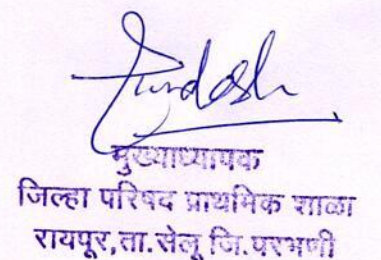 मुख्याध्यापक
जिल्हा परिषद प्राथमिक शाळा
रायपूर, ता. सेलू जि. परभणी